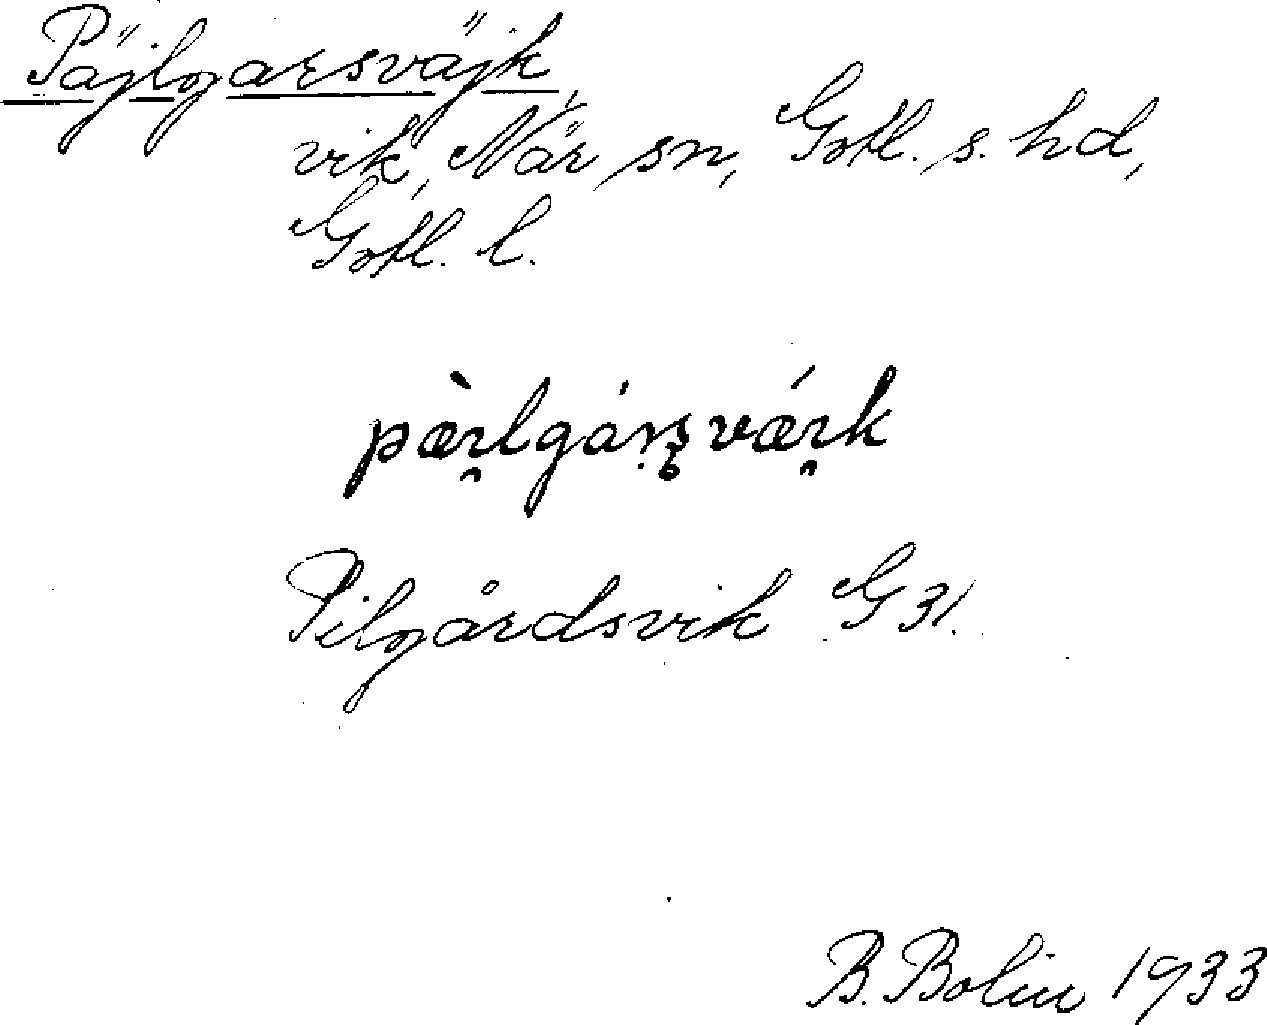 Päjlgarsväjk,
vik, När sn, Gotl. s. hd,
Gotl. l.
Pilgårdsvik G 31.
B. Bolin 1933